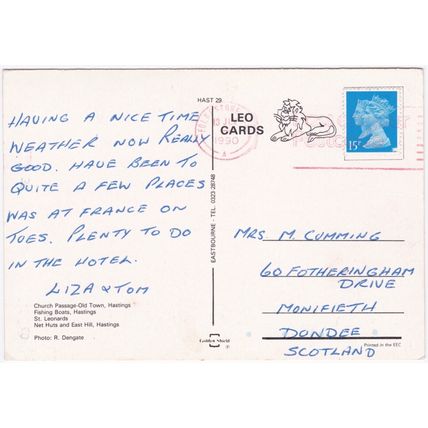 HAST 29
HAVING A NICE TIME
WEATHER NOW REALLY
GOOD. HAVE BEEN TO
QUITE A FEW PLACES
WAS AT FRANCE ON
TUES. PLENTY TO DO
IN THE HOTEL.
LIZA & TOM
Church Passage-Old Town, Hastings
Fishing Boats, Hastings
St. Leonards
Net Huts and East Hill, Hastings
Photo: R. Dengate
EASTBOURNE - TEL: 0323 28748
Golden Shield
LEO
CARDS
1990
A
15P
MRS M. CUMMING
60 FOTHERINGHAM
DRIVE
MONIFIETH
DUNDEE
SCOTLAND
Printed in the EEC